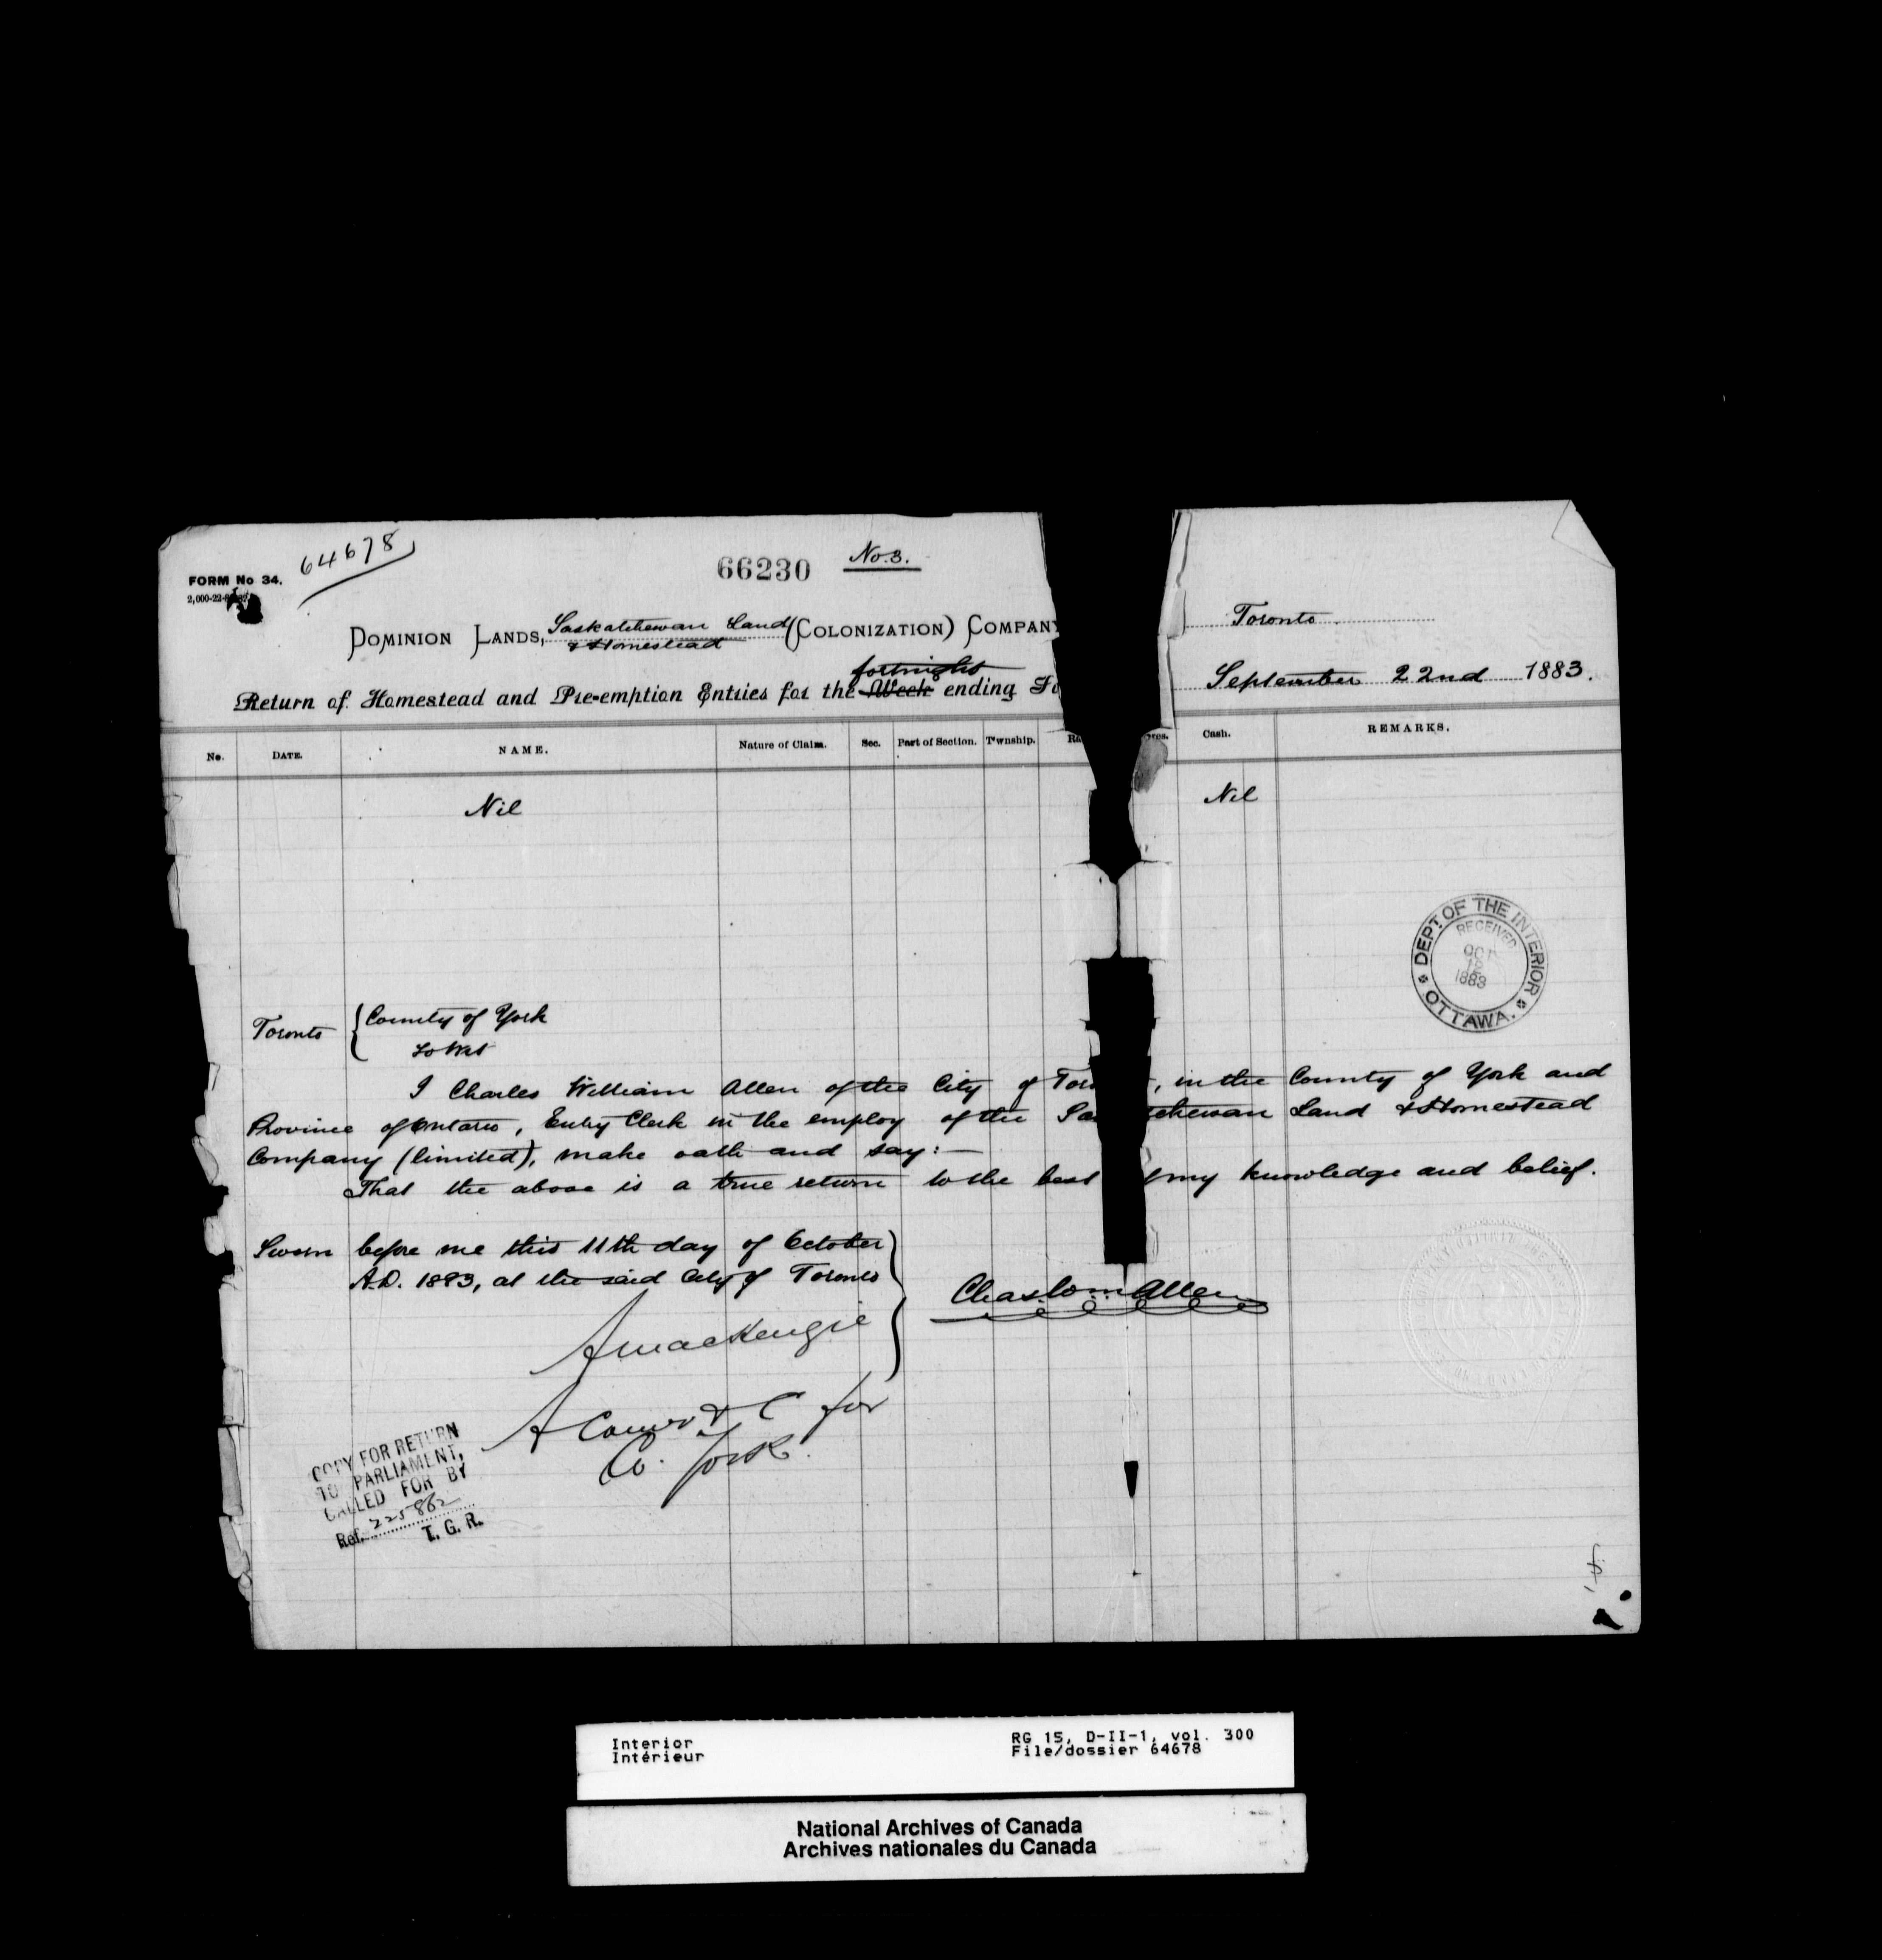 64678
FORM No 34.
66230 No. 3.
DOMINION LANDS, Saskatchewan Land & Homestead (COLONIZATION) COMPANY
Toronto
fortnight
Return of Homestead and Pre-emption Entries for the Week ending
September 22nd 1883.
No. DATE. NAME. Nature of Claim. Sec. Part of Section. T'wnship. Cash. REMARKS.
Nil Nil
DEPT. OF THE INTERIOR
RECEIVED
OCT
1883
OTTAWA.
Toronto { County of York
To Wit
I Charles William Allen of the City of Tor , in the County of York and
Province of Ontario, Entry Clerk in the employ of the Sa tchewan Land & Homestead
Company (limited), make oath and say:—
That the above is a true return to the best my knowledge and belief.
Sworn before me this 11th day of October
A.D. 1883, at the said City of Toronto
Chas Wm Allen
A MacKenzie
A Commr for
Co. York.
COPY FOR RETURN
TO PARLIAMENT,
CALLED FOR BY
Ref. 225862
T. G. R.
Interior RG 15, D-II-1, vol. 300
Intérieur File/dossier 64678
National Archives of Canada
Archives nationales du Canada